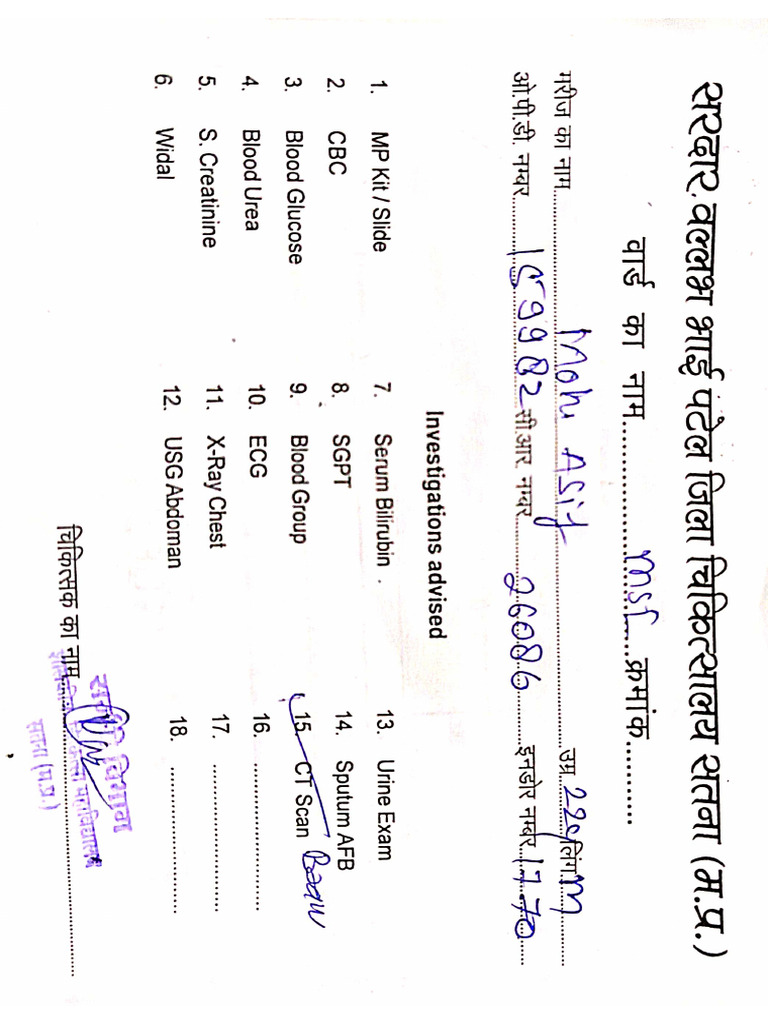 सरदार वल्लभ भाई पटेल जिला चिकित्सालय सतना (म.प्र.)
वार्ड का नाम.....................MSL......क्रमांक............
मरीज का नाम........Moh Asif........उम्र 22y लिंग M
ओ.पी.डी. नम्बर.......159982 सी.आर. नम्बर.......26086.......इनडोर नम्बर 1770
Investigations advised
1. MP Kit / Slide 7. Serum Bilirubin 13. Urine Exam
2. CBC 8. SGPT 14. Sputum AFB
3. Blood Glucose 9. Blood Group 15. CT Scan
4. Blood Urea 10. ECG 16. ........................
5. S. Creatinine 11. X-Ray Chest 17. ........................
6. Widal 12. USG Abdoman 18. ........................
चिकित्सक का नाम........................
विभाग
सतना (म.प्र.)